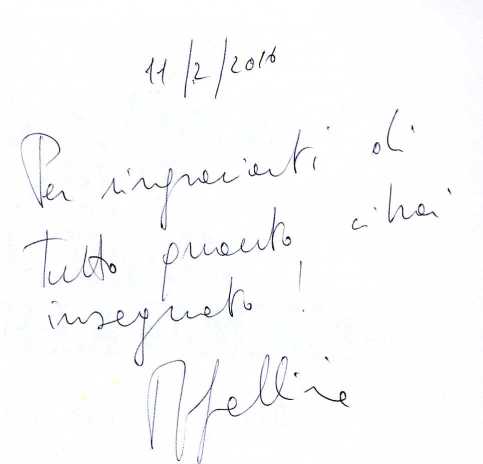 11/2/2016
Per ringraziarti di
tutto quanto ci hai
insegnato!